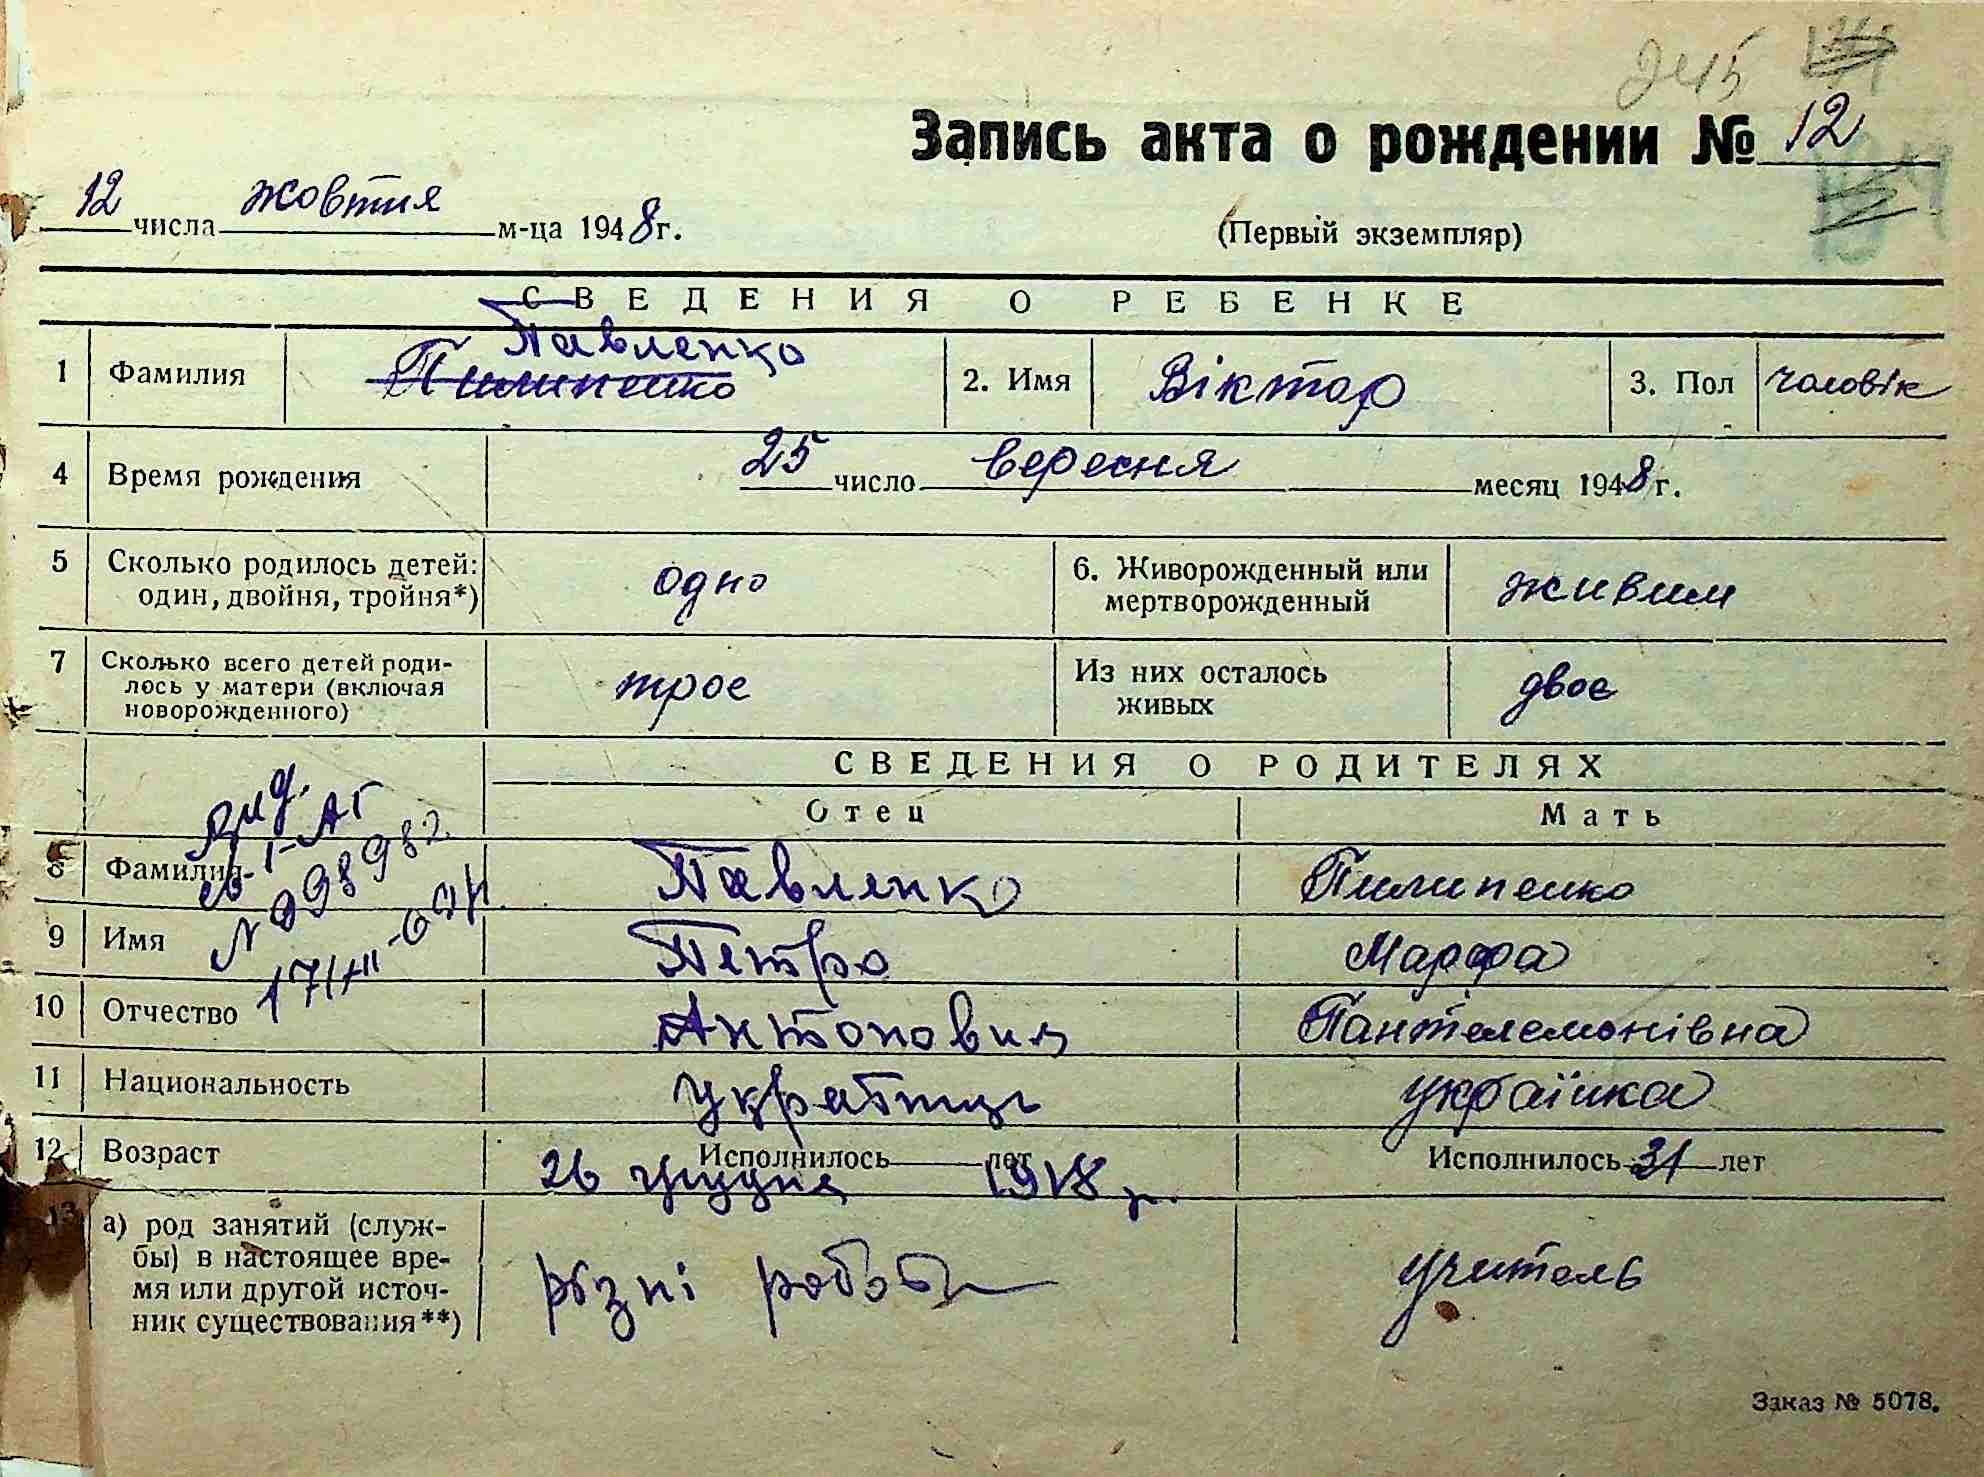 245
Запись акта о рождении № 12
12 числа жовтня м-ца 1948 г.
(Первый экземпляр)
СВЕДЕНИЯ О РЕБЕНКЕ
Павленко
1 Фамилия Пилипенко 2. Имя Віктор 3. Пол чоловік
4 Время рождения 25 число вересня месяц 1948 г.
5 Сколько родилось детей: один, двойня, тройня*) одно 6. Живорожденный или мертворожденный живим
7 Сколько всего детей роди-
лось у матери (включая
новорожденного) троє Из них осталось живых двоє
СВЕДЕНИЯ О РОДИТЕЛЯХ
Отец Мать
Вид.
св. I-АГ
№ 998982
8 Фамилия Павленко Пилипенко
9 Имя Петро Марфа
10 Отчество Антонович Пантелемонівна
11 Национальность Українець українка
12 Возраст Исполнилось лет 26 грудня 1918 р. Исполнилось 31 лет
13 а) род занятий (служ-
бы) в настоящее вре-
мя или другой источ-
ник существования**) різні роботи учитель
Заказ № 5078.